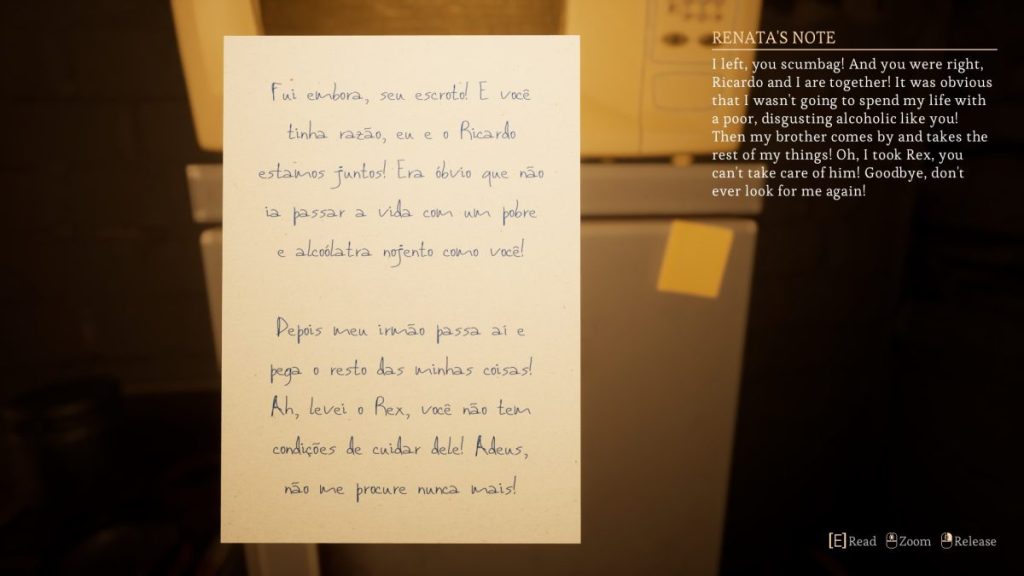 Fui embora, seu escroto! E você
tinha razão, eu e o Ricardo
estamos juntos! Era óbvio que não
ia passar a vida com um pobre
e alcoólatra nojento como você!
Depois meu irmão passa ai e
pega o resto das minhas coisas!
Ah, levei o Rex, você não tem
condições de cuidar dele! Adeus,
não me procure nunca mais!
RENATA'S NOTE
I left, you scumbag! And you were right,
Ricardo and I are together! It was obvious
that I wasn't going to spend my life with
a poor, disgusting alcoholic like you!
Then my brother comes by and takes the
rest of my things! Oh, I took Rex, you
can't take care of him! Goodbye, don't
ever look for me again!
[E]Read Zoom Release